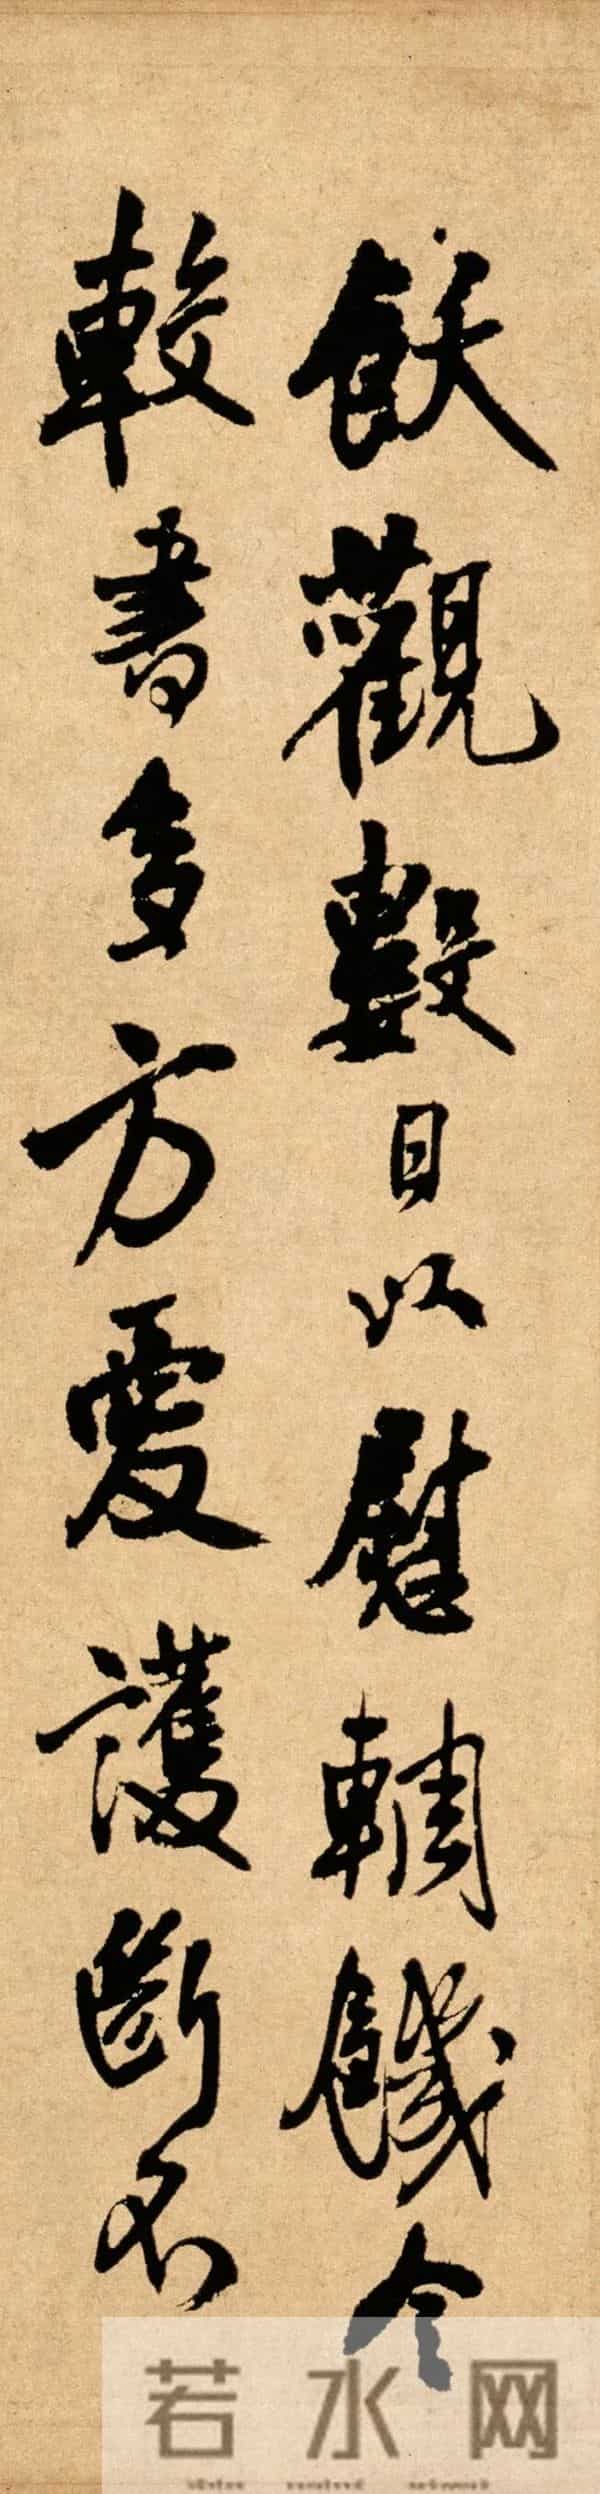 飫觀數日以慰輖饑今
較書多方愛護斷不
若水网